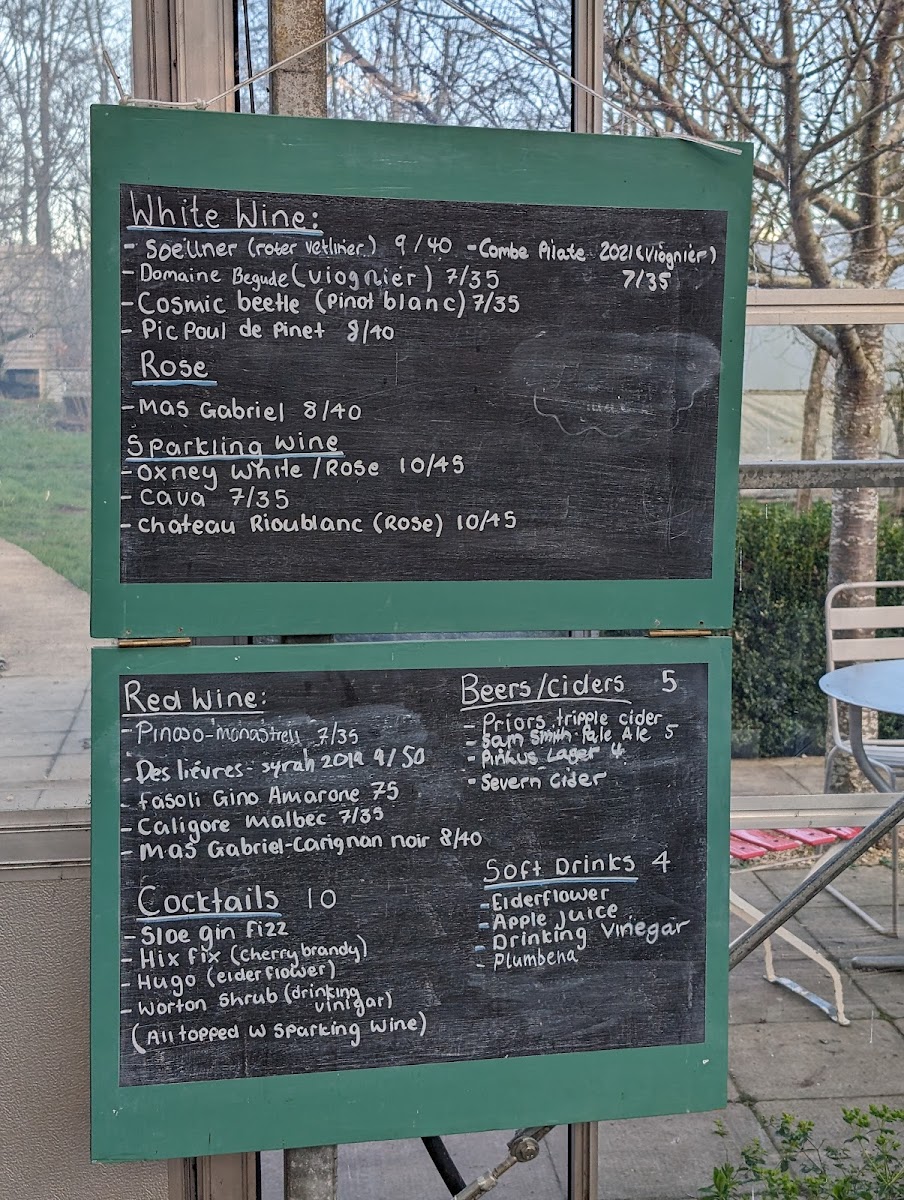 White Wine:
- Soellner (roter vetliner) 9/40
- Combe Pilate 2021 (viognier)
7/35
- Domaine Begude (viognier) 7/35
- Cosmic beetle (Pinot blanc) 7/35
- Pic Poul de Pinet 8/40
Rose
- Mas Gabriel 8/40
Sparkling wine
- Oxney White / Rose 10/45
- Cava 7/35
- Chateau Rioublanc (Rose) 10/45
Red Wine:
- Pinoso - monastrell 7/35
- Des lièvres - syrah 2019 9/50
- fasoli Gino Amarone 75
- Caligore malbec 7/35
- Mas Gabriel - Carignan noir 8/40
Cocktails 10
- Sloe gin fizz
- Hix fix (cherry brandy)
- Hugo (elderflower)
- Worton Shrub (drinking
vinigar)
(All topped w sparking wine)
Beers/ciders 5
- Priors tripple cider
- Sam Smith Pale Ale 5
- Pinkus Lager 4
- Severn Cider
Soft Drinks 4
- Elderflower
- Apple Juice
- Drinking Vinegar
- Plumbena